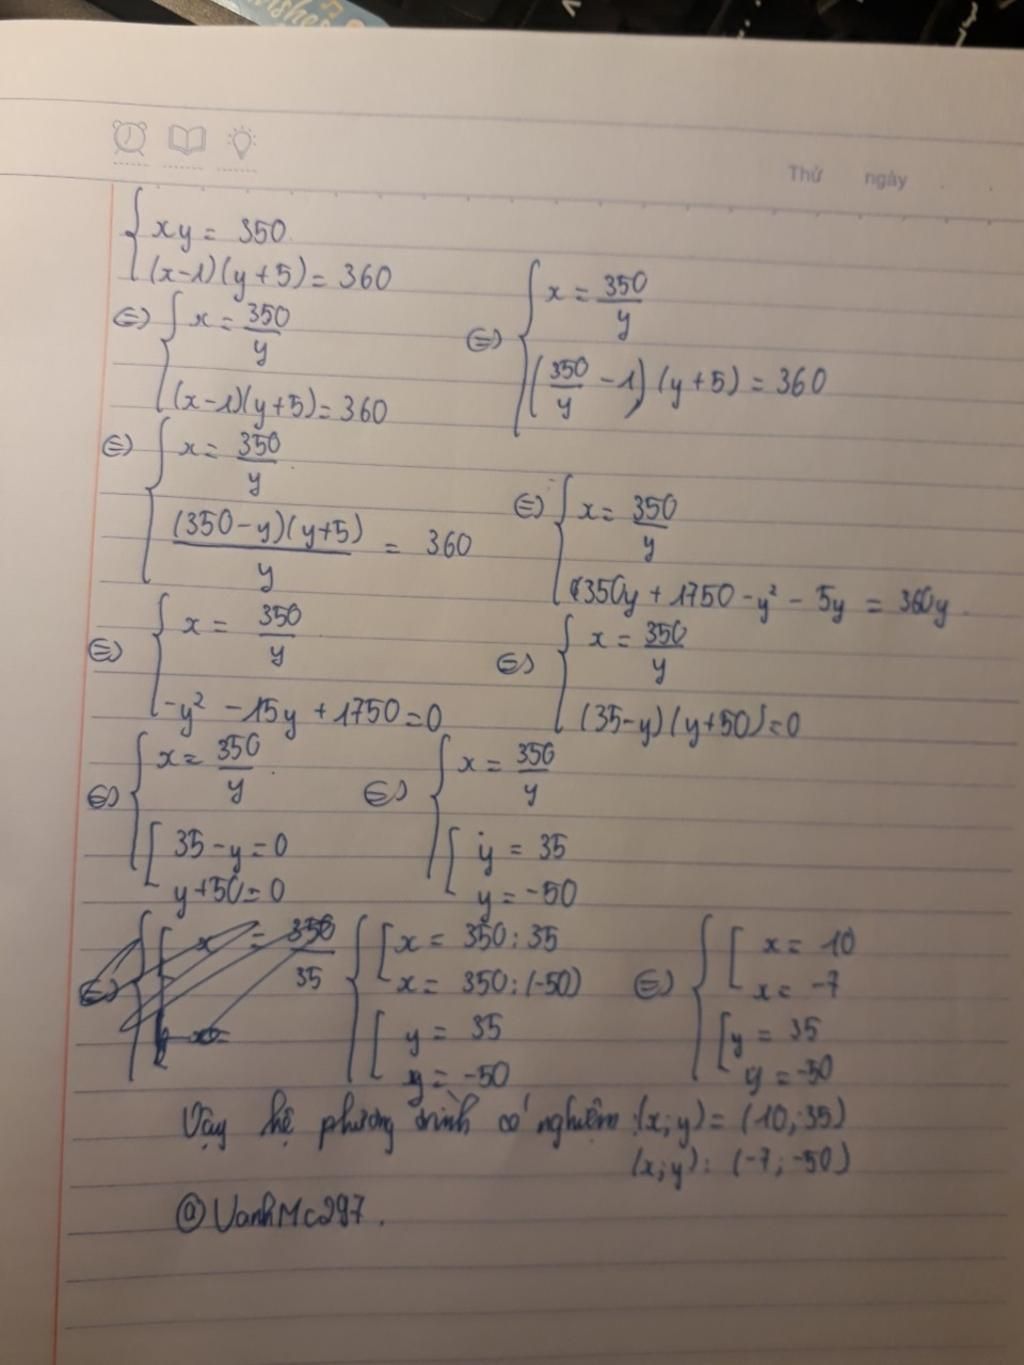 wishes
Thứ ngày
{ xy = 350
(x-1)(y+5) = 360
⇔ { x = 350/y
(x-1)(y+5) = 360
⇔ { x = 350/y
(350/y - 1)(y+5) = 360
⇔ { x = 350/y
(350-y)(y+5)/y = 360
⇔ { x = 350/y
350y + 1750 - y² - 5y = 360y
⇔ { x = 350/y
-y² - 15y + 1750 = 0
⇔ { x = 350/y
(35-y)(y+50) = 0
⇔ { x = 350/y
[ 35 - y = 0
y + 50 = 0
⇔ { x = 350/y
[ y = 35
y = -50
⇔ { [ x = 350/35
x =
{ [ x = 350 : 35
x = 350 : (-50)
[ y = 35
y = -50
⇔ { [ x = 10
x = -7
[ y = 35
y = -50
Vậy hệ phương trình có nghiệm : (x; y) = (10; 35)
(x; y) : (-7; -50)
@VanhMc297.